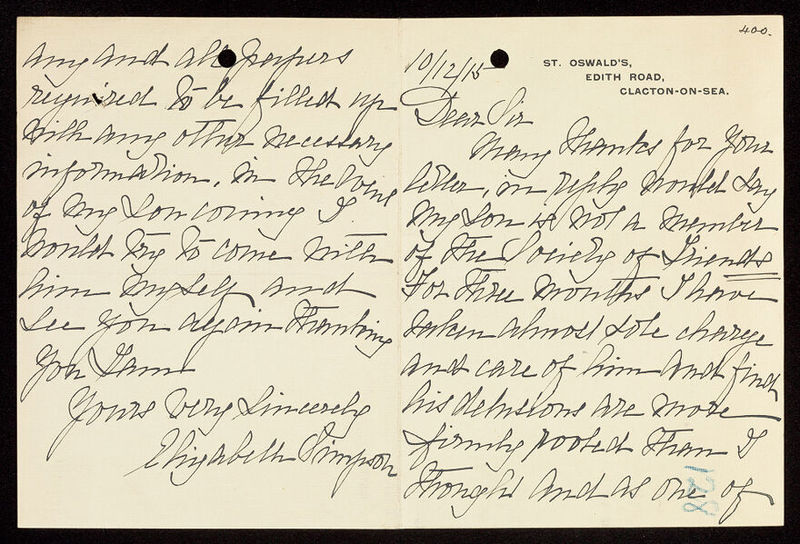 400.
10/12/15
ST. OSWALD'S,
EDITH ROAD,
CLACTON-ON-SEA.
Dear Sir
Many thanks for your
letter, in reply would say
my Son is not a member
of the Society of Friends
For three months I have
taken almost sole charge
and care of him and find
his delusions are more
firmly rooted than I
thought and as one of
128
any and all papers
required to be filled up
with any other necessary
information, in the event
of my Son coming I
would try to come with
him myself and
see you again Thanking
you I am
Yours Very Sincerely
Elizabeth Simpson